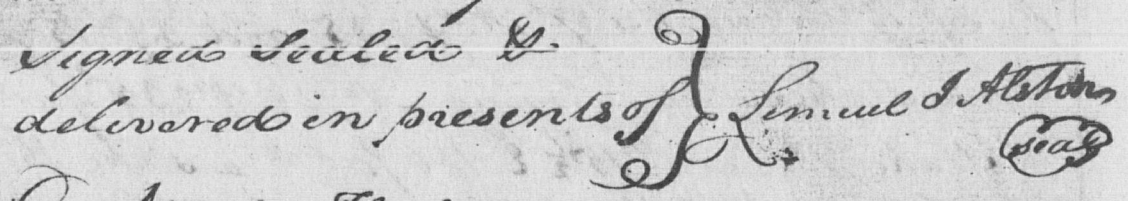 Signed Sealed &
delivered in presents of } Lemuel J Alston
seal